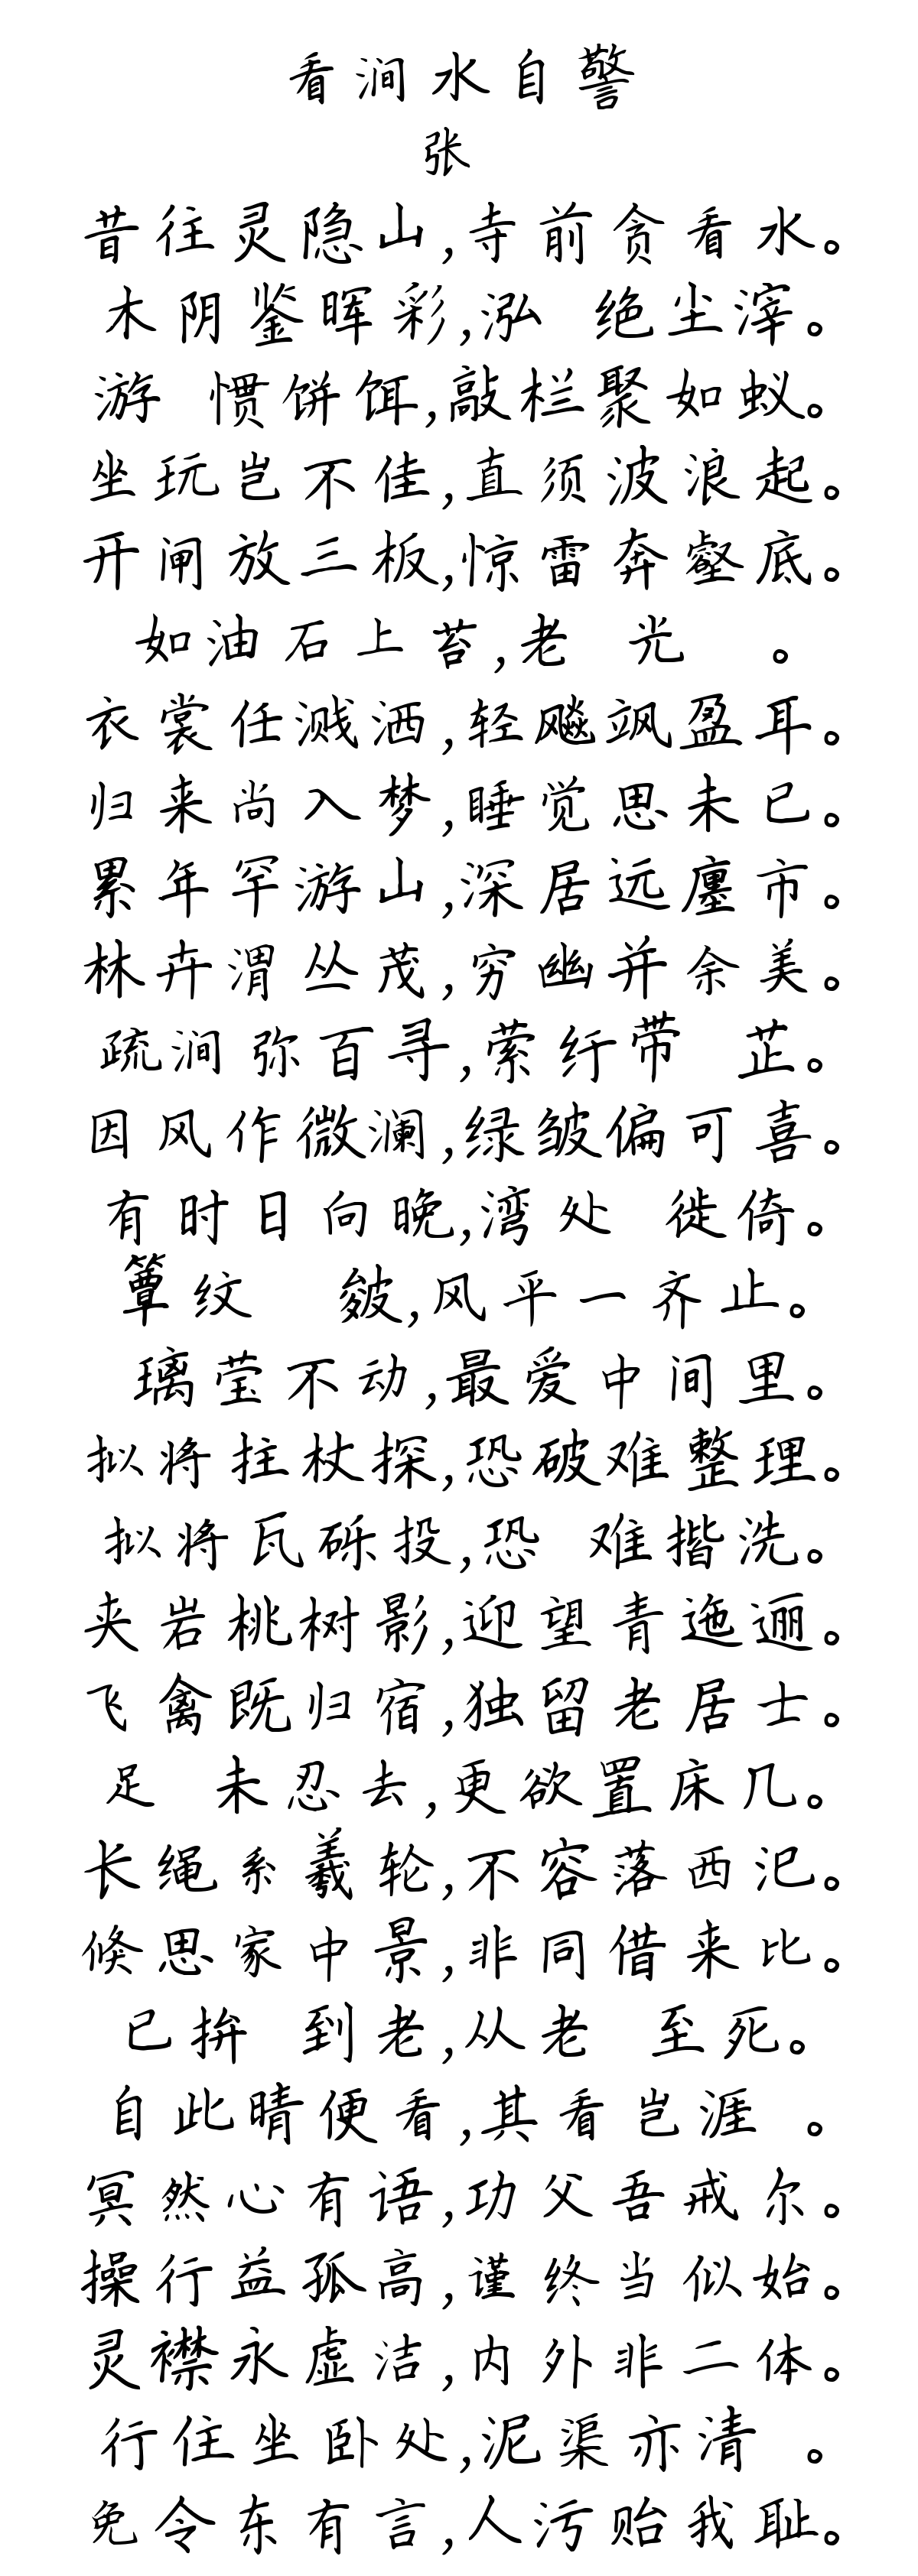 看涧水自警
张
昔往灵隐山,寺前贪看水。
木阴鉴晖彩,泓 绝尘滓。
游 惯饼饵,敲栏聚如蚁。
坐玩岂不佳,直须波浪起。
开闸放三板,惊雷奔壑底。
如油石上苔,老 光 。
衣裳任溅洒,轻飚飒盈耳。
归来尚入梦,睡觉思未已。
累年罕游山,深居远廛市。
林卉渭丛茂,穷幽并余美。
疏涧弥百寻,萦纡带 芷。
因风作微澜,绿皱偏可喜。
有时日向晚,湾处 徙倚。
簟纹 皴,风平一齐止。
璃莹不动,最爱中间里。
拟将拄杖探,恐破难整理。
拟将瓦砾投,恐 难揩洗。
夹岩桃树影,迎望青迤逦。
飞禽既归宿,独留老居士。
足 未忍去,更欲置床几。
长绳系羲轮,不容落西汜。
倏思家中景,非同借来比。
已拚 到老,从老 至死。
自此晴便看,其看岂涯 。
冥然心有语,功父吾戒尔。
操行益孤高,谨终当似始。
灵襟永虚洁,内外非二体。
行住坐卧处,泥渠亦清 。
免令东有言,人污贻我耻。